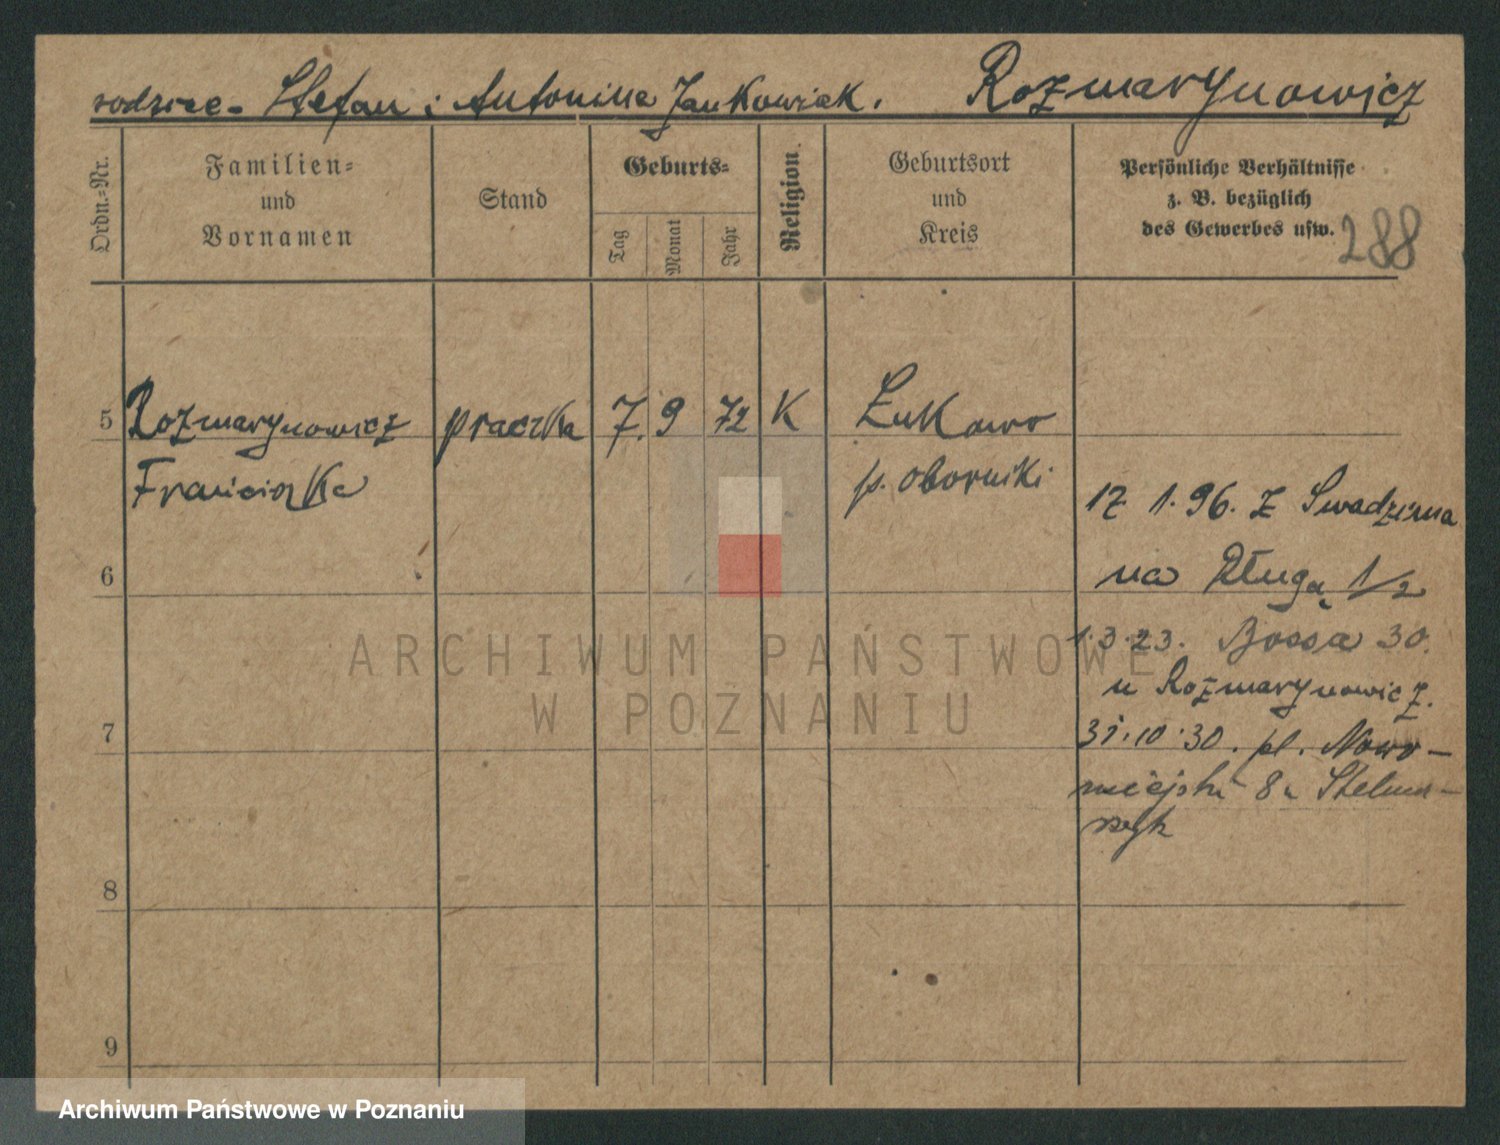 rodzice - Stefan i Antonina Jankowiak. Rozmarynowicz
Ordn.-Nr.
Familien-
und
Vornamen
Stand
Geburts-
Tag
Monat
Jahr
Religion.
Geburtsort
und
Kreis
Persönliche Verhältnisse
z. B. bezüglich
des Gewerbes usw.
288
5 Rozmarynowicz praczka 7. 9 72 K Łukowo
Franciszka p. Oborniki
17 1. 96. z Swadzima
6 na Długą 1/2
1. 3. 23. Bossa 30.
u Rozmarynowicz.
7 31. 10. 30. pl. Nowo-
miejski 8 u Stelma-
szyk
8
9
ARCHIWUM PAŃSTWOWE
W POZNANIU
Archiwum Państwowe w Poznaniu